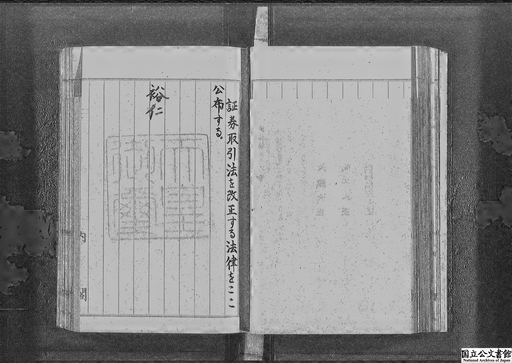 証券取引法を改正する法律をここに
公布する。
裕仁
天皇御璽
内閣
国立公文書館
National Archives of Japan